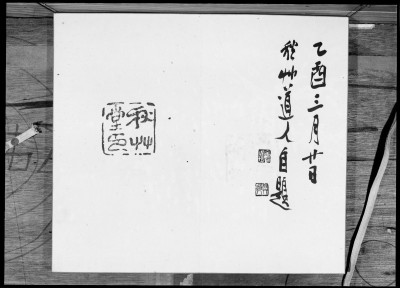 乙酉三月廿日
秋艸道人自題
秋艸
堂印